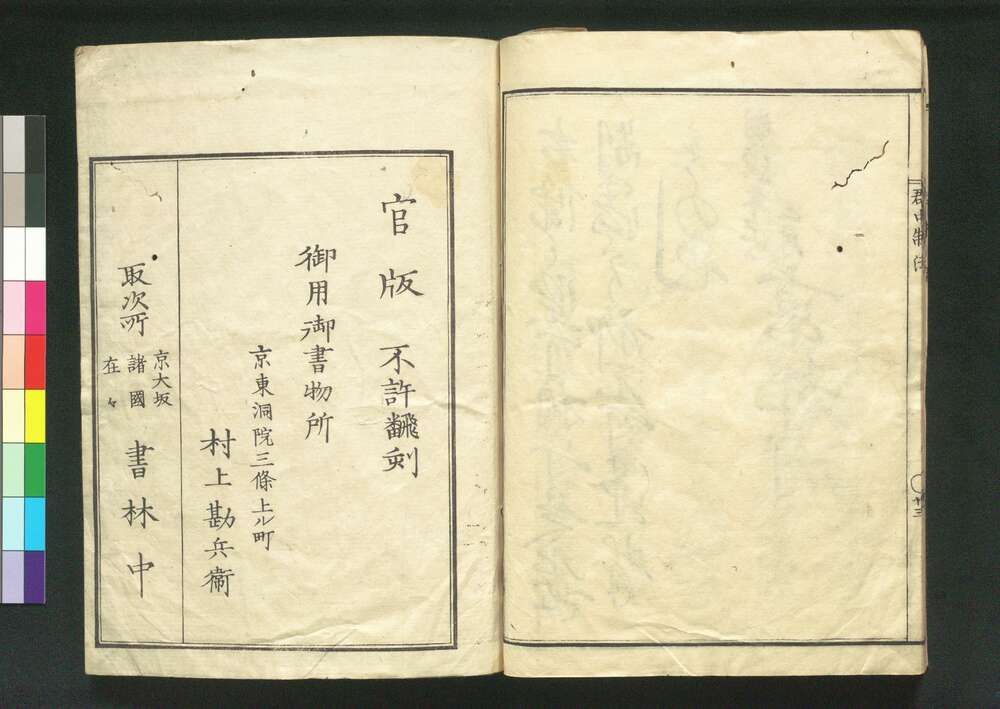 郡中制法
廿三
官版 不許飜刻
御用御書物所
京東洞院三條上ル町
村上勘兵衞
取次所
京大坂
諸國
在々
書林中